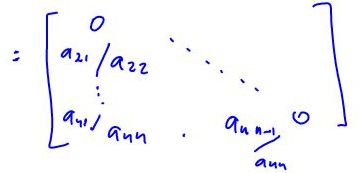 = [ 0 ⋱
a₂₁/a₂₂
⋮
aₙ₁/aₙₙ . aₙ ₙ₋₁/aₙₙ 0 ]